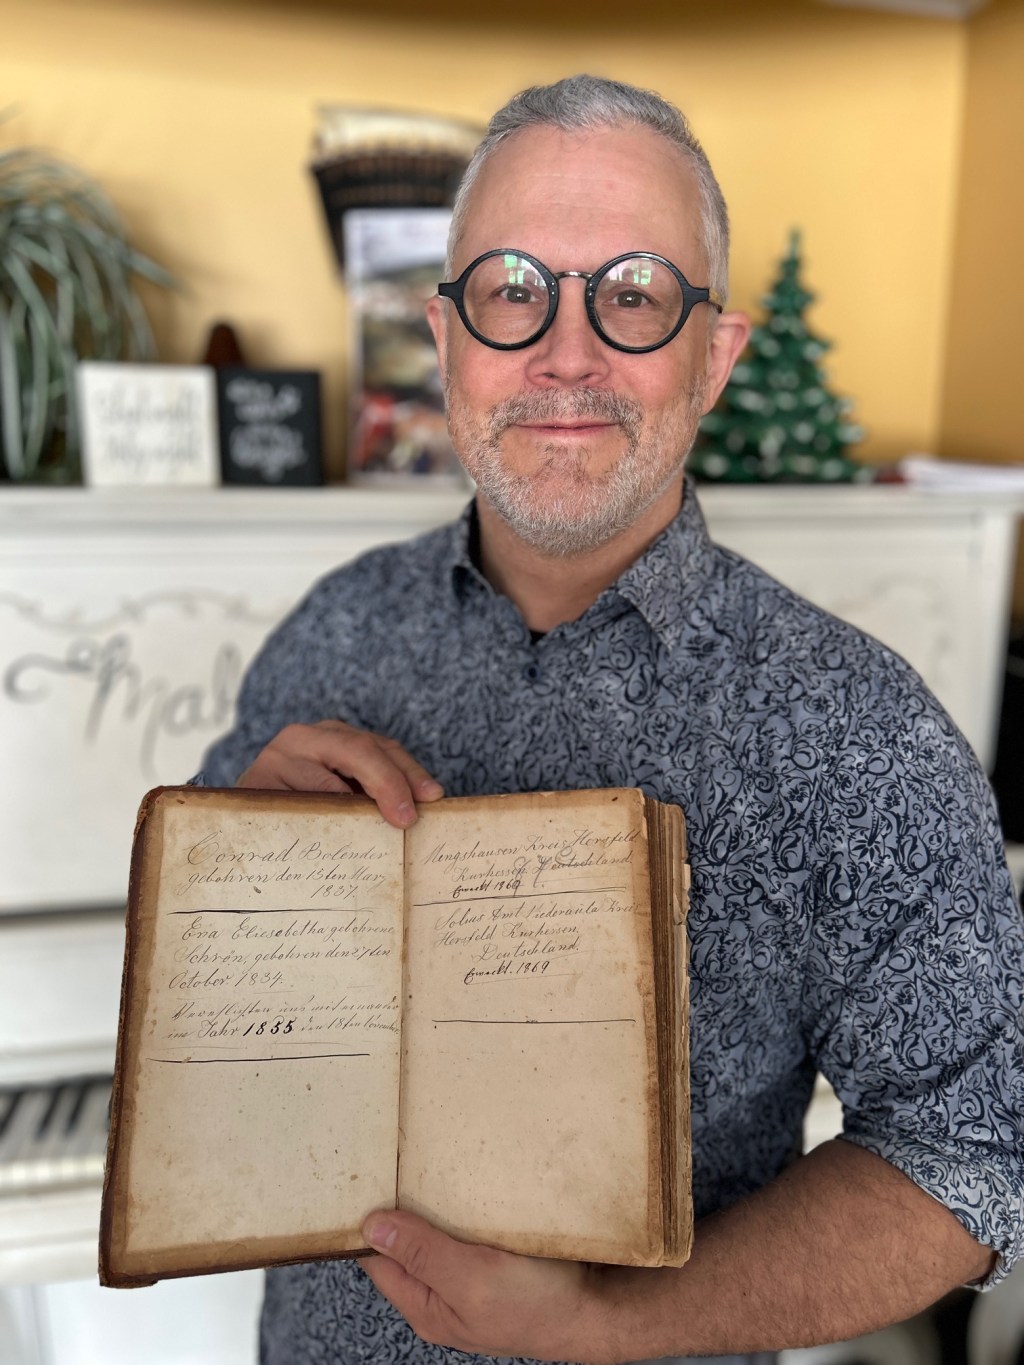 Conrad Bolender
gebohren den 13ten März
1837.
Eva Eliesabetha gebohrene
Schrön, gebohren den 27den
October 1834.
uns mit einander
im Jahr 1855 den 18ten November
Mengshausen Kreis Hersfeld
Kurhessen Deutschland.
Erweckt 1869
Solms Amt Niederaula Kreis
Hersfeld Kurhessen
Deutschland.
Erweckt. 1869
Mak